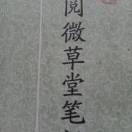 閲微草堂笔